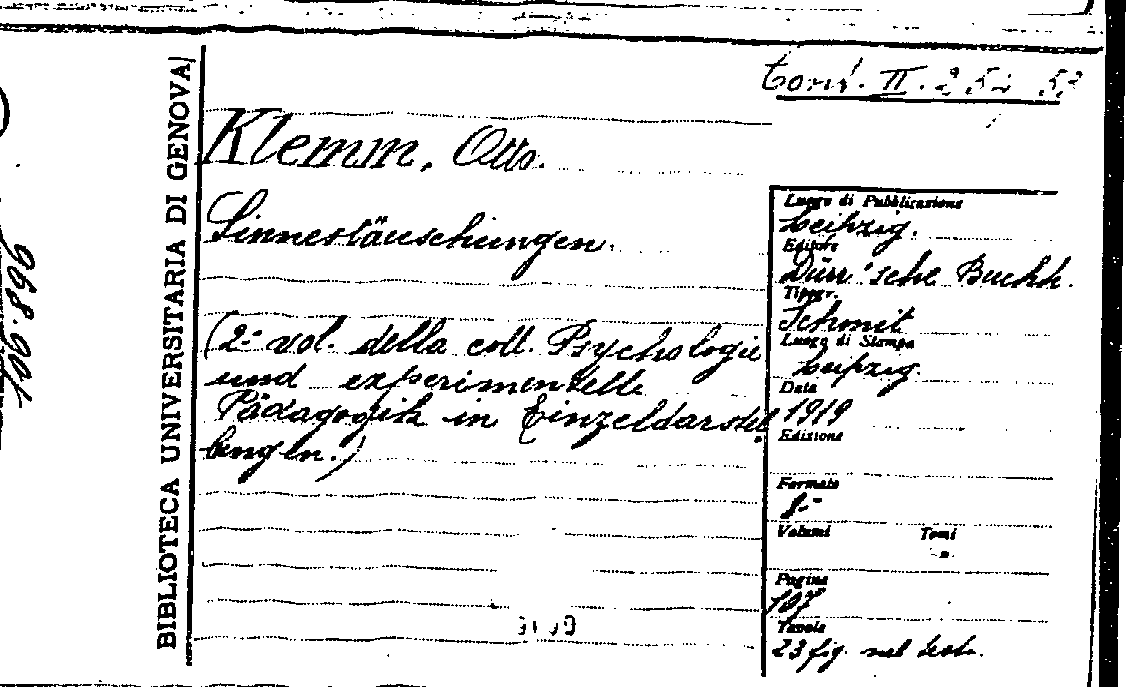 BIBLIOTECA UNIVERSITARIA DI GENOVA
Klemm, Otto.
Sinnestäuschungen.
(2º vol. della coll. Psychologie
und experimentelle
Pädagogik in Einzeldarstel
lungen.)
Luogo di Pubblicazione
Leipzig.
Editore
Dürr'sche Buchh.
Tipogr.
Schmit
Luogo di Stampa
Leipzig
Data
1919
Edizione
Formato
8º
Volumi Tomi
Pagine
107
Tavole
23 fig. nel testo.